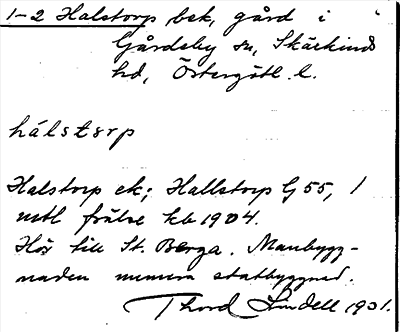 1-2 Halstorp bek, gård i
Gårdeby sn, Skärkinds
hd, Östergötl. l.
hálstơrp
Halstorp ek; Hallstorp G 55, 1
mtl frälse kb 1904.
Hör till St. Berga. Manbygg-
naden numera statbyggnad.
Thord Lindell 1931.